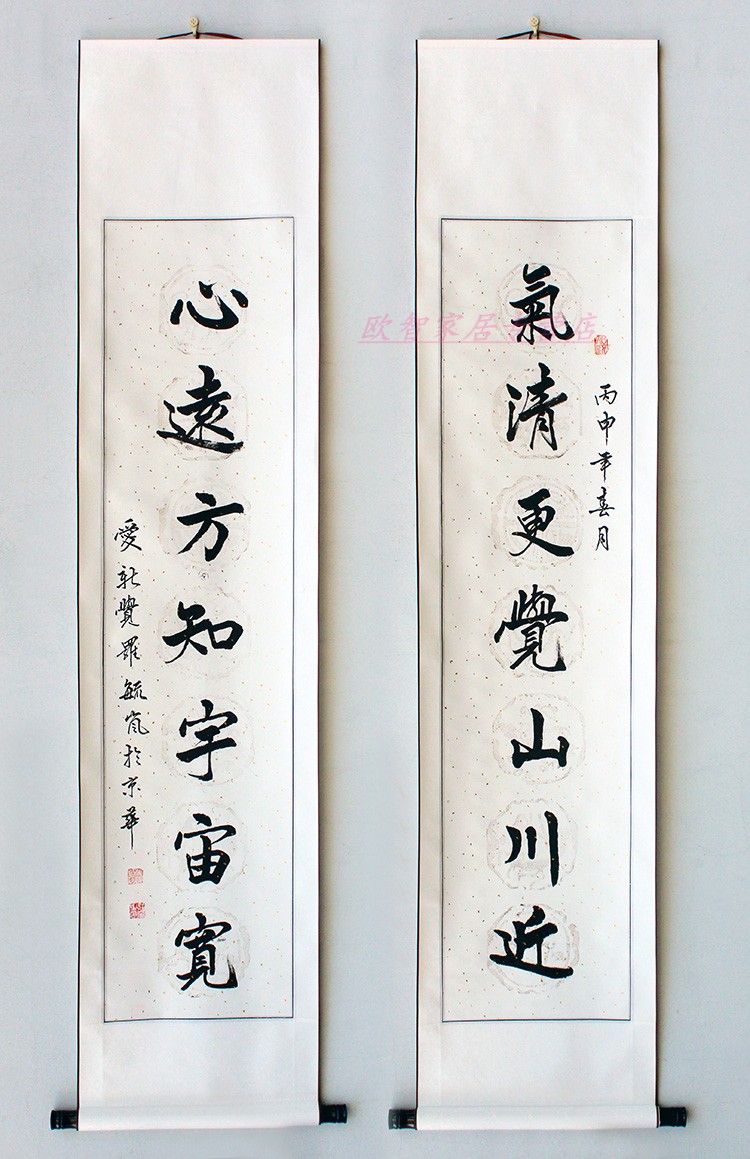 氣清更覺山川近
丙申年春月
心遠方知宇宙寬
愛新覺羅毓嵐於京華
欧智家居
店